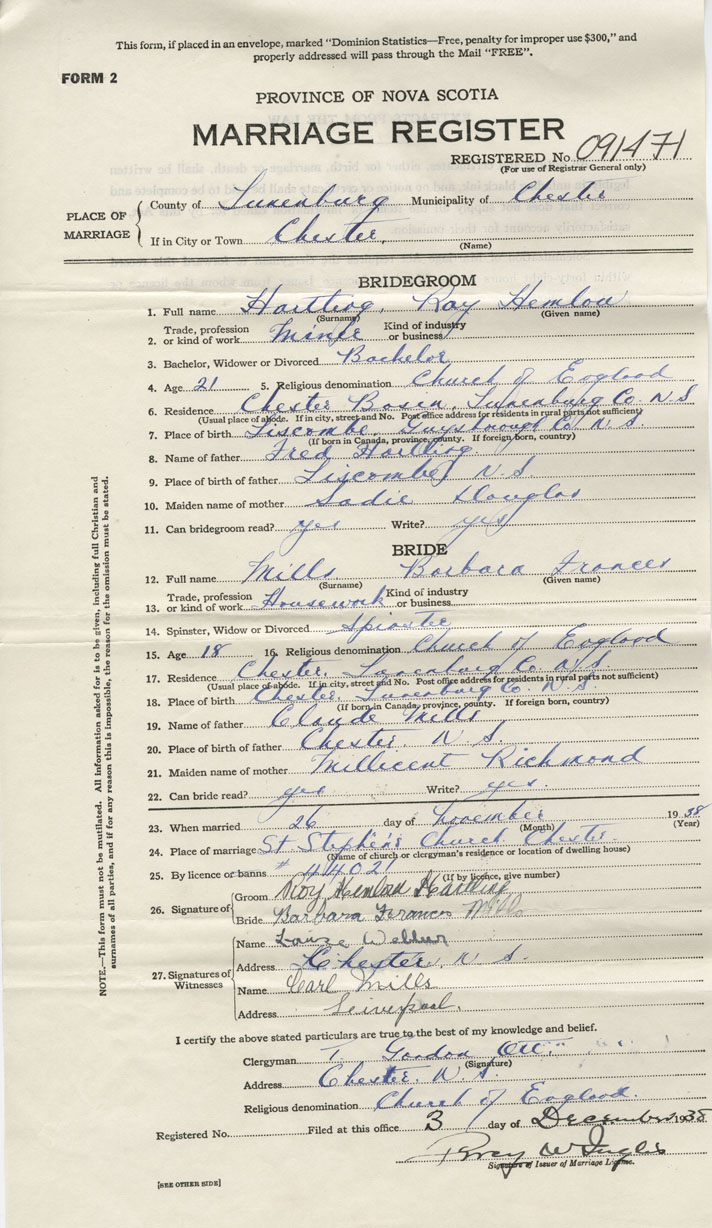 This form, if placed in an envelope, marked "Dominion Statistics—Free, penalty for improper use $300," and
properly addressed will pass through the Mail "FREE".
FORM 2
PROVINCE OF NOVA SCOTIA
MARRIAGE REGISTER
REGISTERED No 091471
(For use of Registrar General only)
PLACE OF MARRIAGE
County of Lunenburg Municipality of Chester
If in City or Town Chester.
(Name)
BRIDEGROOM
1. Full name Hartling, Roy Hemlow
(Surname) (Given name)
2. Trade, profession or kind of work Miner Kind of industry or business
3. Bachelor, Widower or Divorced Bachelor
4. Age 21 5. Religious denomination Church of England
6. Residence Chester Basin, Lunenburg Co. N.S
(Usual place of abode. If in city, street and No. Post office address for residents in rural parts not sufficient)
7. Place of birth Liscombe, Guysborough Co. N.S.
(If born in Canada, province, county. If foreign born, country)
8. Name of father Fred Hartling
9. Place of birth of father Liscombe, N.S
10. Maiden name of mother Sadie Douglas
11. Can bridegroom read? yes Write? yes
BRIDE
12. Full name Mills Barbara Frances
(Surname) (Given name)
13. Trade, profession or kind of work Housework Kind of industry or business
14. Spinster, Widow or Divorced Spinster
15. Age 18 16. Religious denomination Church of England
17. Residence Chester, Lunenburg Co. N.S.
(Usual place of abode. If in city, street and No. Post office address for residents in rural parts not sufficient)
18. Place of birth Chester, Lunenburg Co. N.S.
(If born in Canada, province, county. If foreign born, country)
19. Name of father Claude Mills
20. Place of birth of father Chester. N.S
21. Maiden name of mother Millicent Richmond
22. Can bride read? yes Write? yes.
23. When married 26 day of November 1938
(Month) (Year)
24. Place of marriage St Stephen's Church Chester.
(Name of church or clergyman's residence or location of dwelling house)
25. By licence or banns # 44021
(If by licence, give number)
26. Signature of
Groom Roy Hemlow Hartling
Bride Barbara Frances Mills
27. Signatures of Witnesses
Name Webber
Address Chester, N.S.
Name Carl Mills
Address Liverpool.
I certify the above stated particulars are true to the best of my knowledge and belief.
Clergyman T. Gordon Ott.
(Signature)
Address Chester. N.S.
Religious denomination Church of England.
Registered No. Filed at this office 3 day of December 1938
Percy W
Signature of Issuer of Marriage License.
[SEE OTHER SIDE]
NOTE.—This form must not be mutilated. All information asked for is to be given, including full Christian and
surnames of all parties, and if for any reason this is impossible, the reason for the omission must be stated.